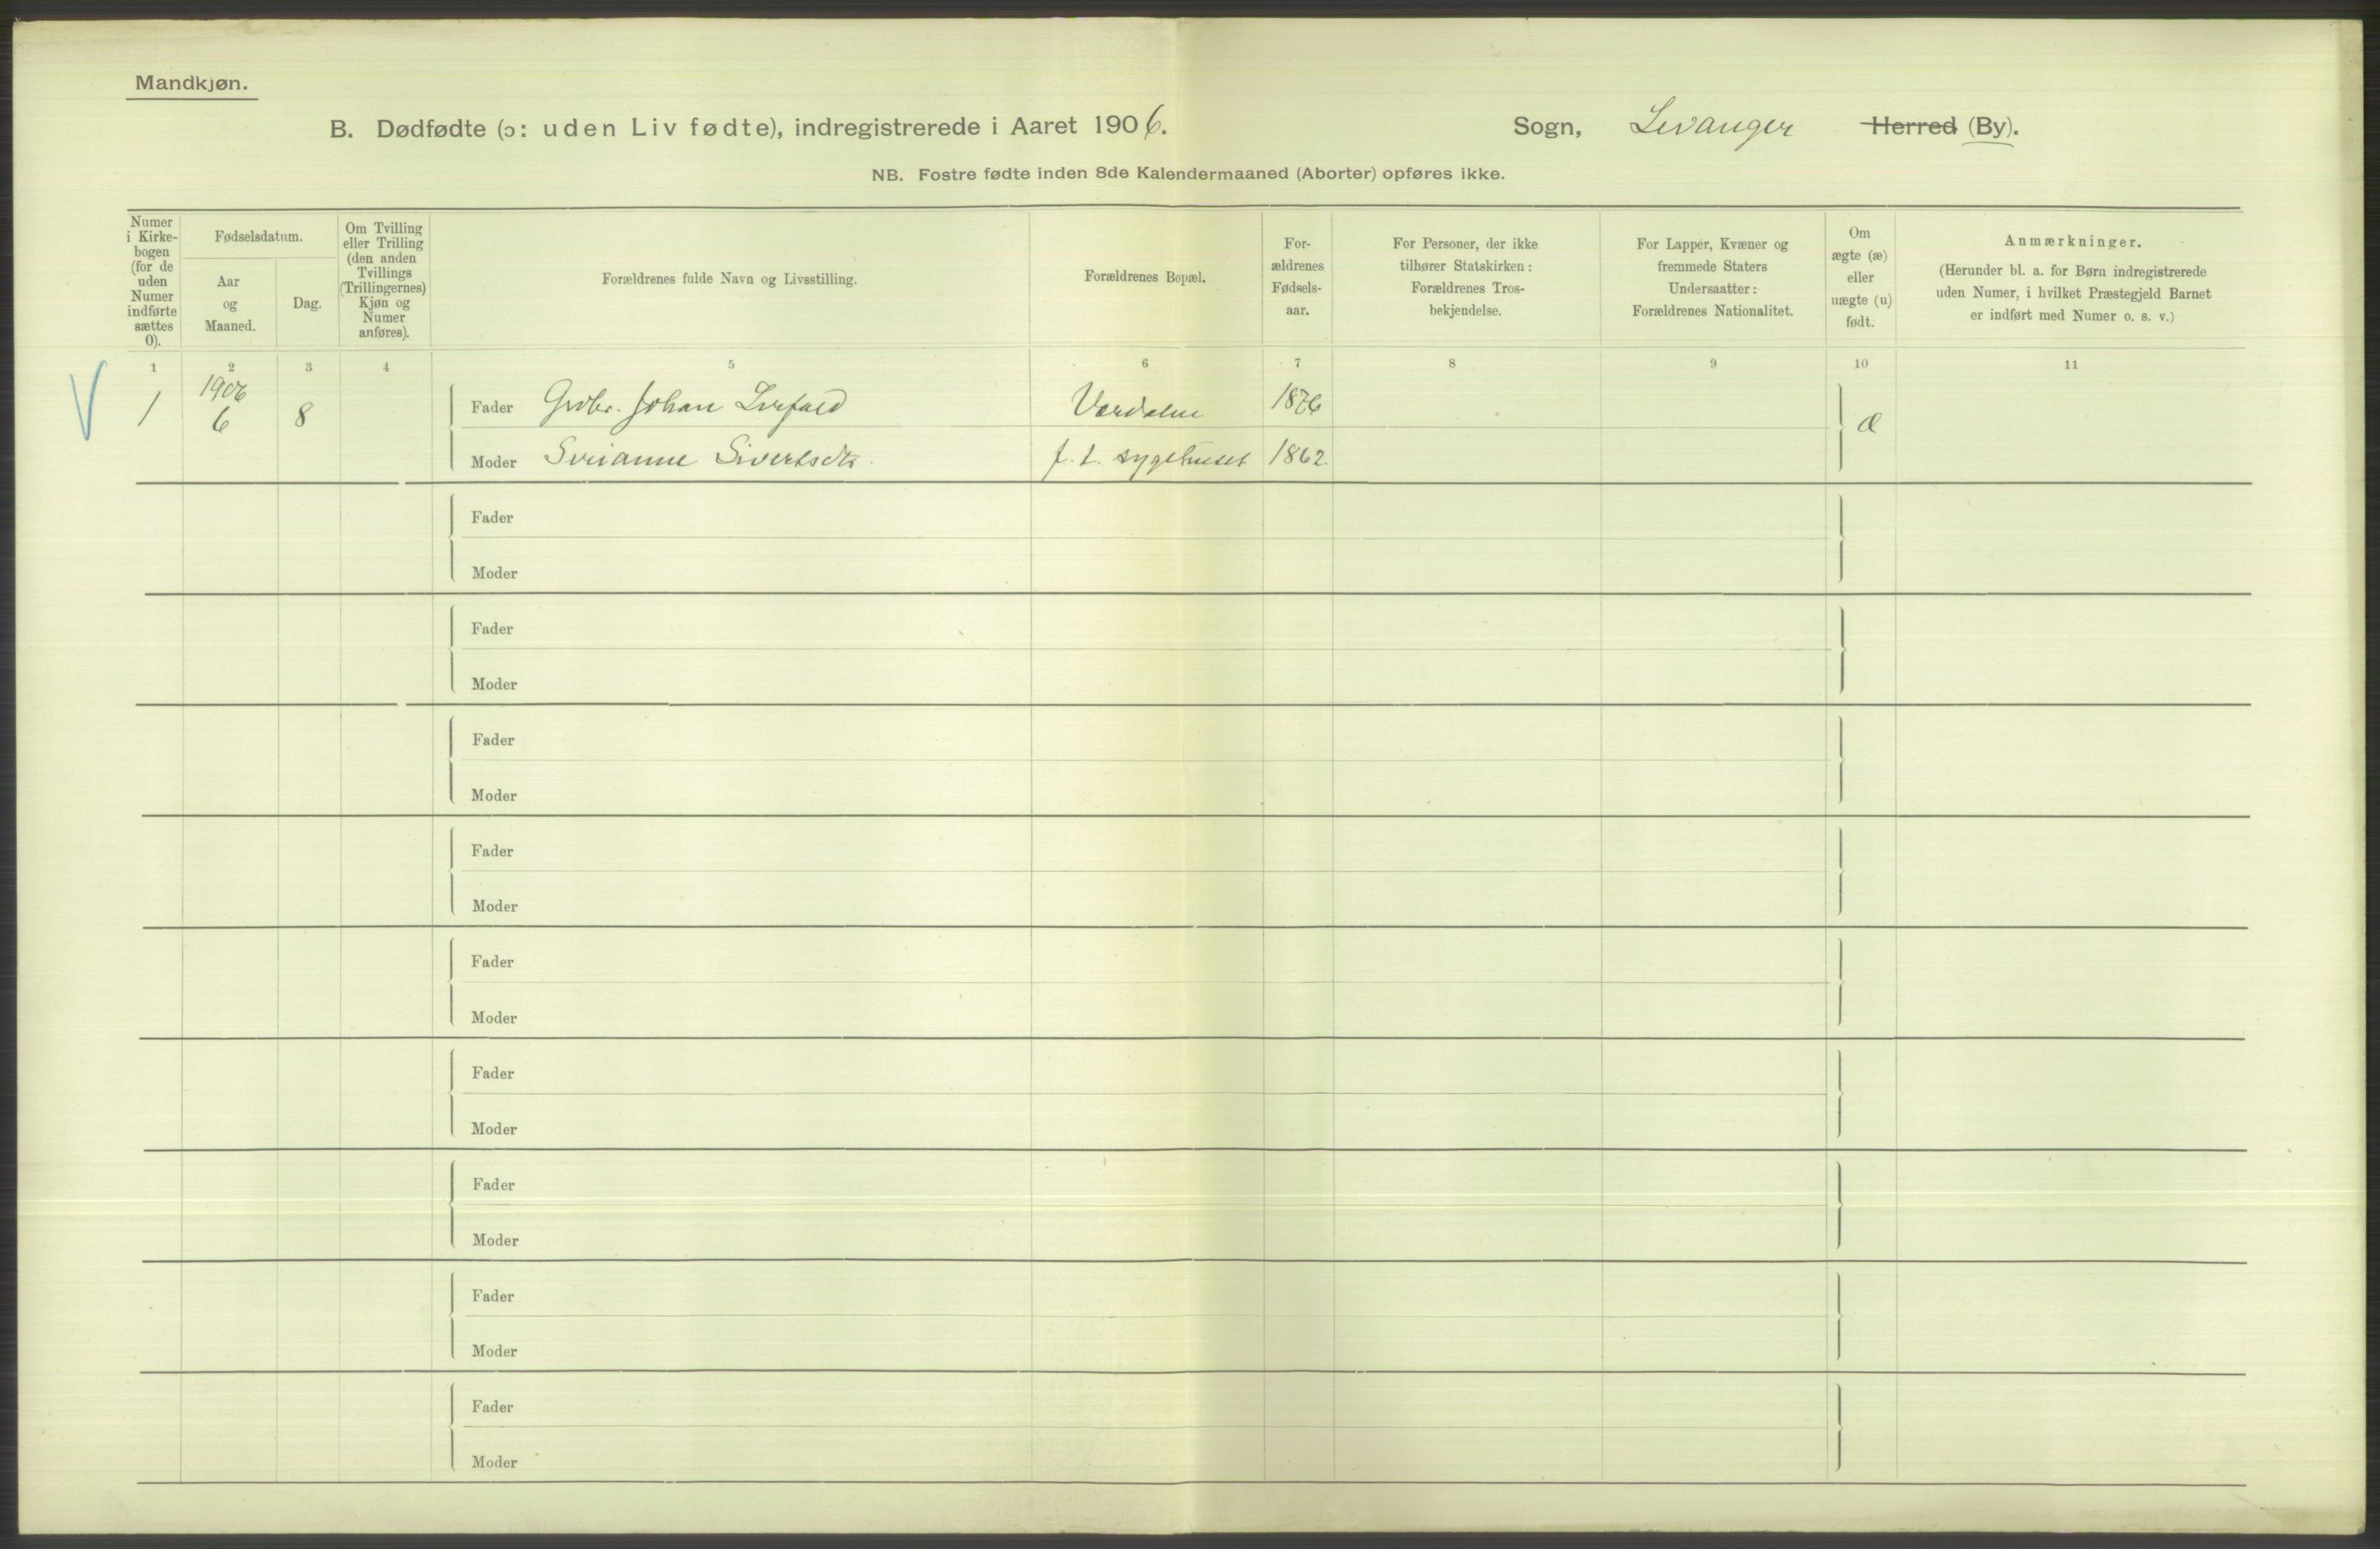 Mandkjøn.
B. Dødfødte (ɔ: uden Liv fødte), indregistrerede i Aaret 1906. Sogn, Levanger Herred (By).
NB. Fostre fødte inden 8de Kalendermaaned (Aborter) opføres ikke.
Numer
i Kirke-
bogen
(for de
uden
Numer
indførte
sættes
0).
Fødselsdatum.
Aar
og
Maaned.
Dag.
Om Tvilling
eller Trilling
(den anden
Tvillings
(Trillingernes)
Kjøn og
Numer
anføres).
Forældrenes fulde Navn og Livsstilling.
Forældrenes Bopæl.
For-
ældrenes
Fødsels-
aar.
For Personer, der ikke
tilhører Statskirken:
Forældrenes Tros-
bekjendelse.
For Lapper, Kvæner og
fremmede Staters
Undersaatter:
Forældrenes Nationalitet.
Om
ægte (æ)
eller
uægte (u)
født.
Anmærkninger.
(Herunder bl. a. for Børn indregistrerede
uden Numer, i hvilket Præstegjeld Barnet
er indført med Numer o. s. v.)
1 2 3 4 5 6 7 8 9 10 11
V
1
1906
6
8
Fader Johan Værdalen 1876
Moder Sivertsdtr. f. t. sygehuset 1862.
æ
Fader
Moder
Fader
Moder
Fader
Moder
Fader
Moder
Fader
Moder
Fader
Moder
Fader
Moder
Fader
Moder
Fader
Moder